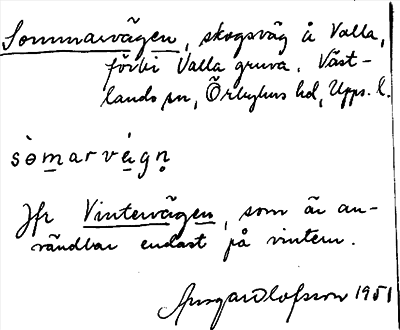 Sommarvägen, skogsväg å Valla,
förbi Valla gruva. Väst-
lands sn, Örbyhus hd, Upps. l.
sòmarvägn̥
Jfr Vintervägen, som är an-
vändbar endast på vintern.
Ansgar Olofsson 1951